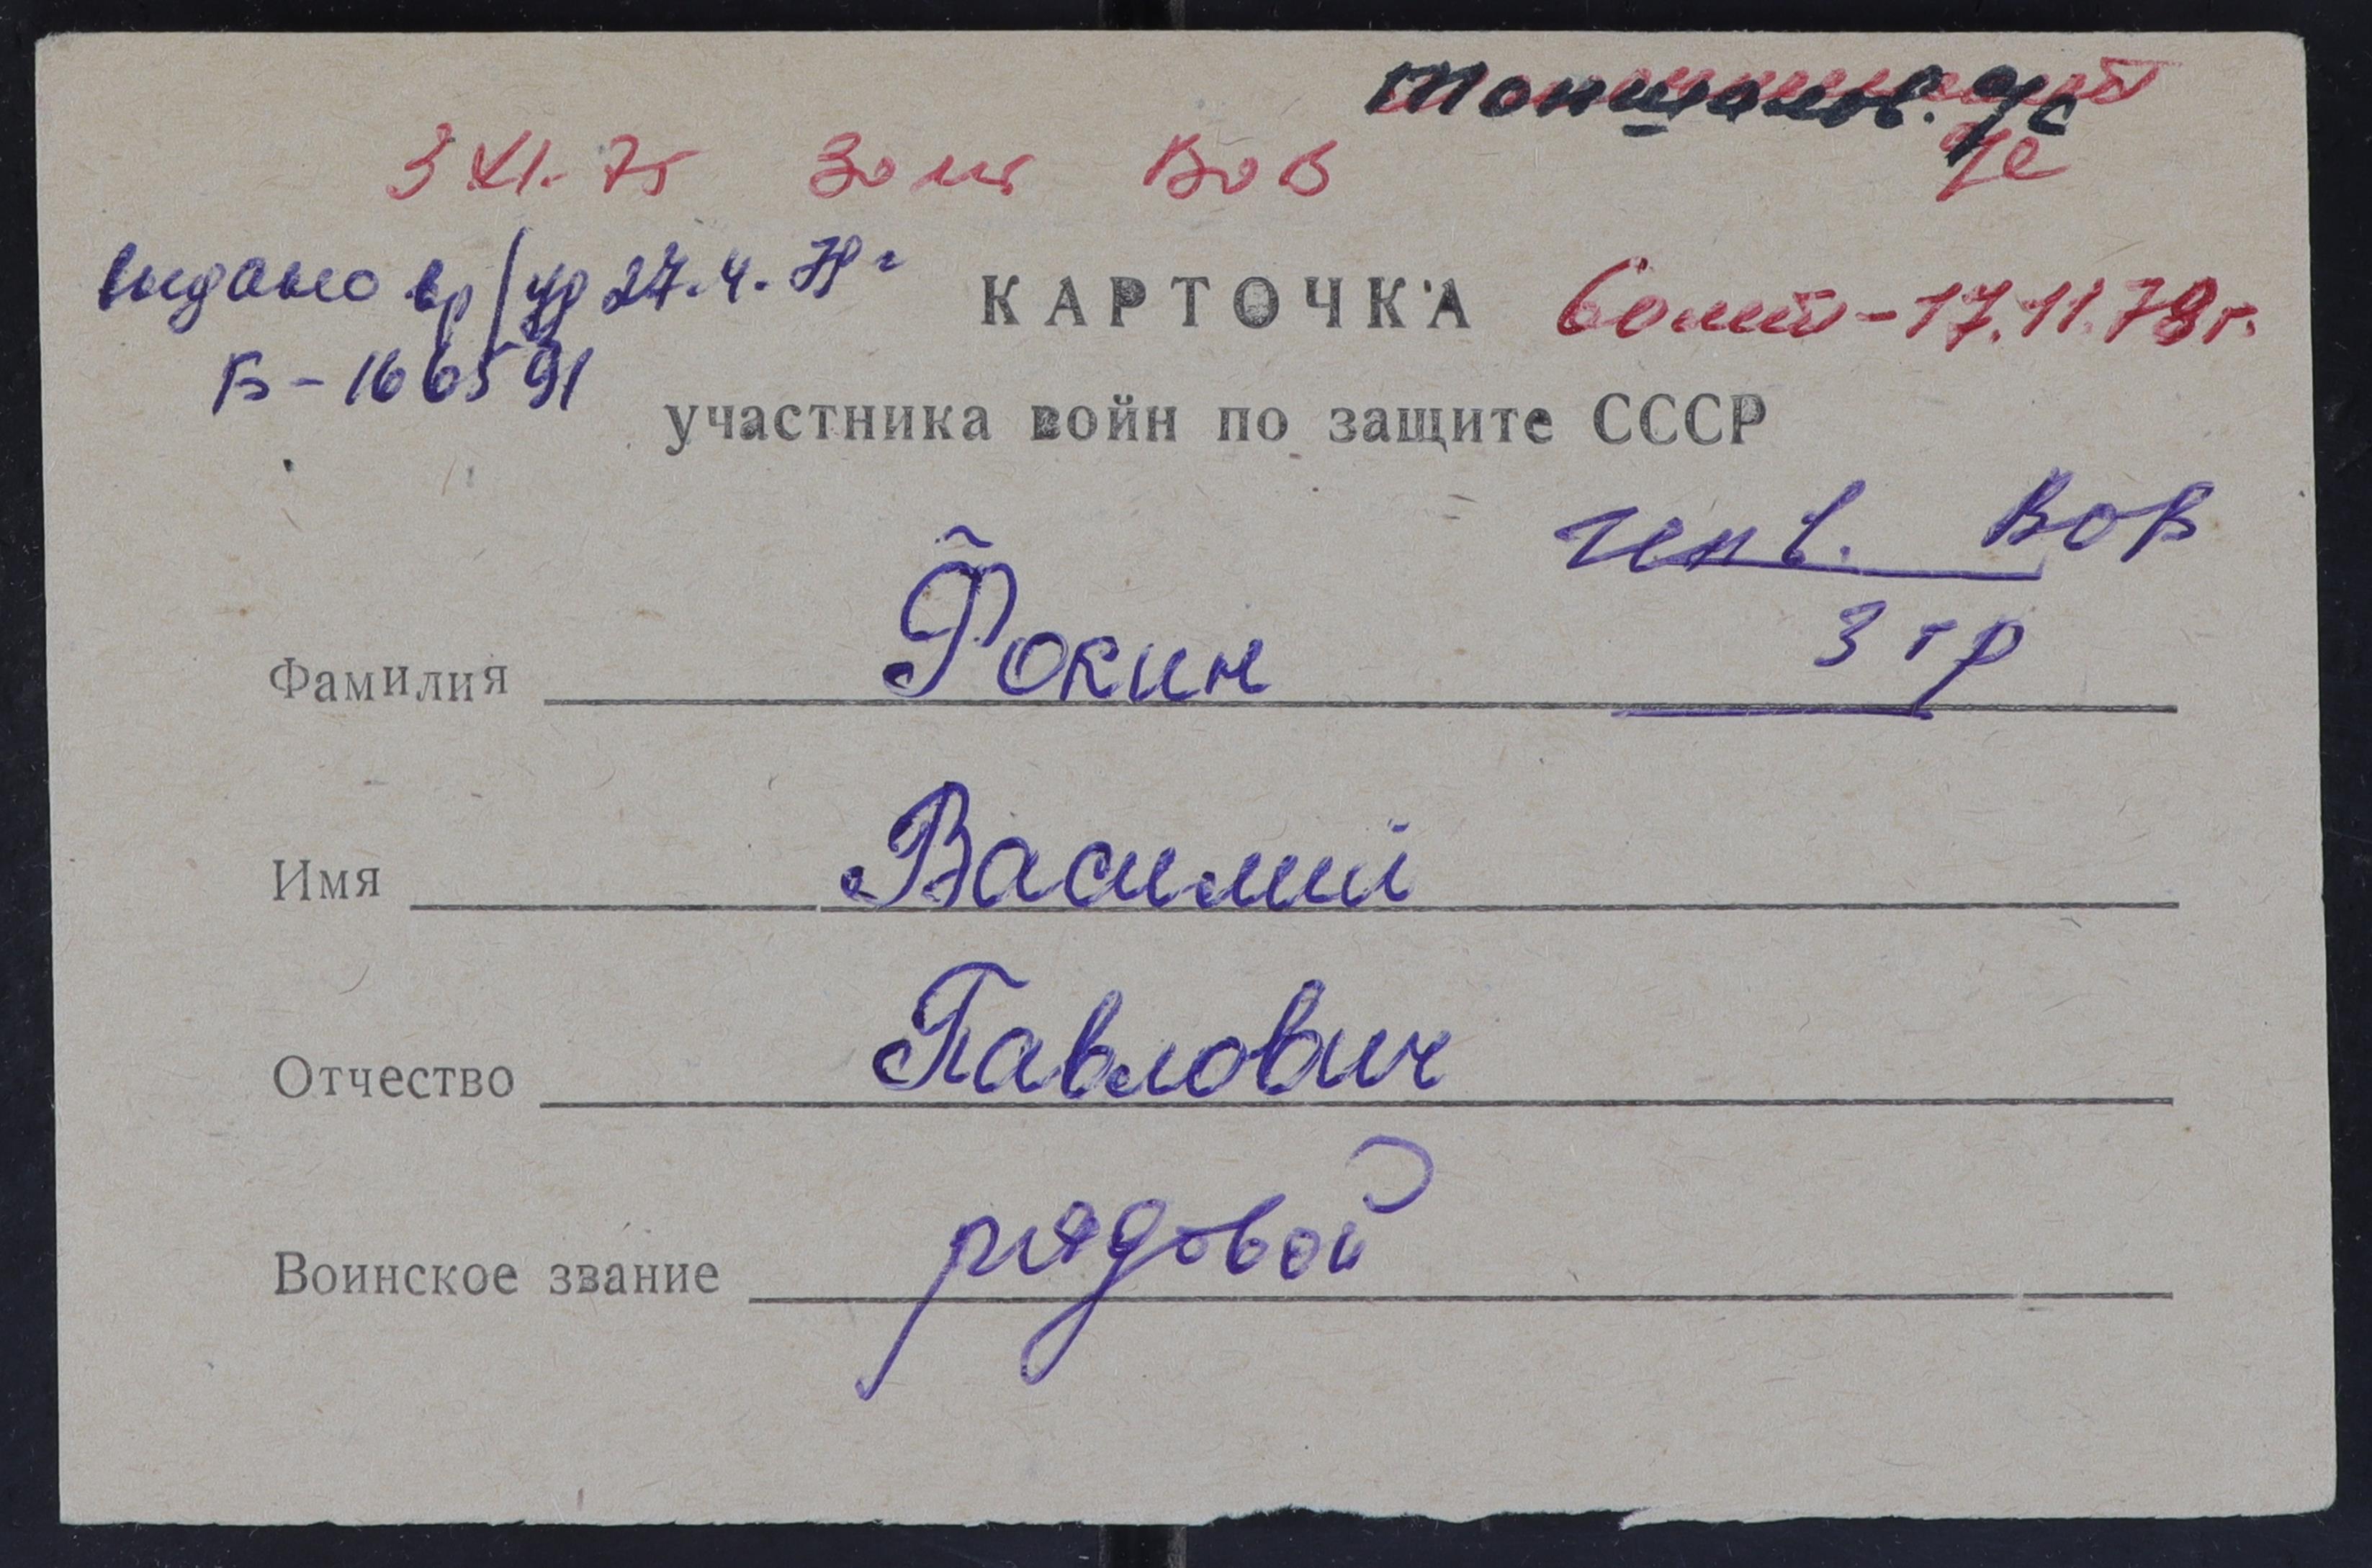 3 XI. 75 30 лет ВОВ
выдано вр/уд 27.4.79 г
Б - 166591
КАРТОЧКА
60 лет - 17.11.78 г.
участника войн по защите СССР
инв. ВОВ
3 гр
Фамилия Фокин
Имя Василий
Отчество Павлович
Воинское звание рядовой